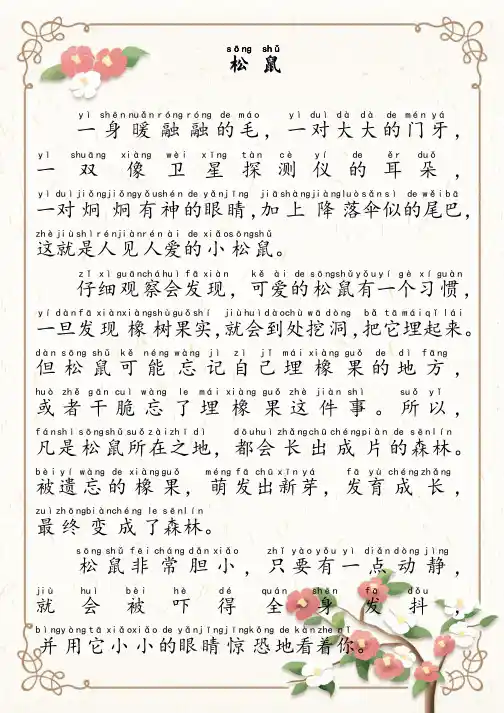 sōng shǔ
松鼠
yì shēn nuǎn róng róng de máo yì duì dà dà de mén yá
一身暖融融的毛，一对大大的门牙，
yì shuāng xiàng wèi xīng tàn cè yí de ěr duǒ
一双像卫星探测仪的耳朵，
yí duì jiǒng jiǒng yǒu shén de yǎn jīng jiā shàng jiàng luò sǎn sì de wěi bā
一对炯炯有神的眼睛,加上降落伞似的尾巴,
zhè jiù shì rén jiàn rén ài de xiǎo sōng shǔ
这就是人见人爱的小松鼠。
zǐ xì guān chá huì fā xiàn kě ài de sōng shǔ yǒu yí gè xí guàn
仔细观察会发现，可爱的松鼠有一个习惯，
yí dàn fā xiàn xiàng shù guǒ shí jiù huì dào chù wā dòng bǎ tā mái qǐ lái
一旦发现橡树果实,就会到处挖洞,把它埋起来。
dàn sōng shǔ kě néng wàng jì zì jǐ mái xiàng guǒ de dì fāng
但松鼠可能忘记自己埋橡果的地方，
huò zhě gān cuì wàng le mái xiàng guǒ zhè jiàn shì suǒ yǐ
或者干脆忘了埋橡果这件事。所以，
fán shì sōng shǔ suǒ zài zhī dì dōu huì zhǎng chū chéng piàn de sēn lín
凡是松鼠所在之地，都会长出成片的森林。
bèi yí wàng de xiàng guǒ méng fā chū xīn yá fā yù chéng zhǎng
被遗忘的橡果，萌发出新芽，发育成长，
zuì zhōng biàn chéng le sēn lín
最终变成了森林。
sōng shǔ fēi cháng dǎn xiǎo zhǐ yào yǒu yì diǎn dòng jìng
松鼠非常胆小，只要有一点动静，
jiù huì bèi hè dé quán shēn fā dǒu
就会被吓得全身发抖，
bìng yòng tā xiǎo xiǎo de yǎn jīng jīng kǒng de kàn zhe nǐ
并用它小小的眼睛惊恐地看着你。